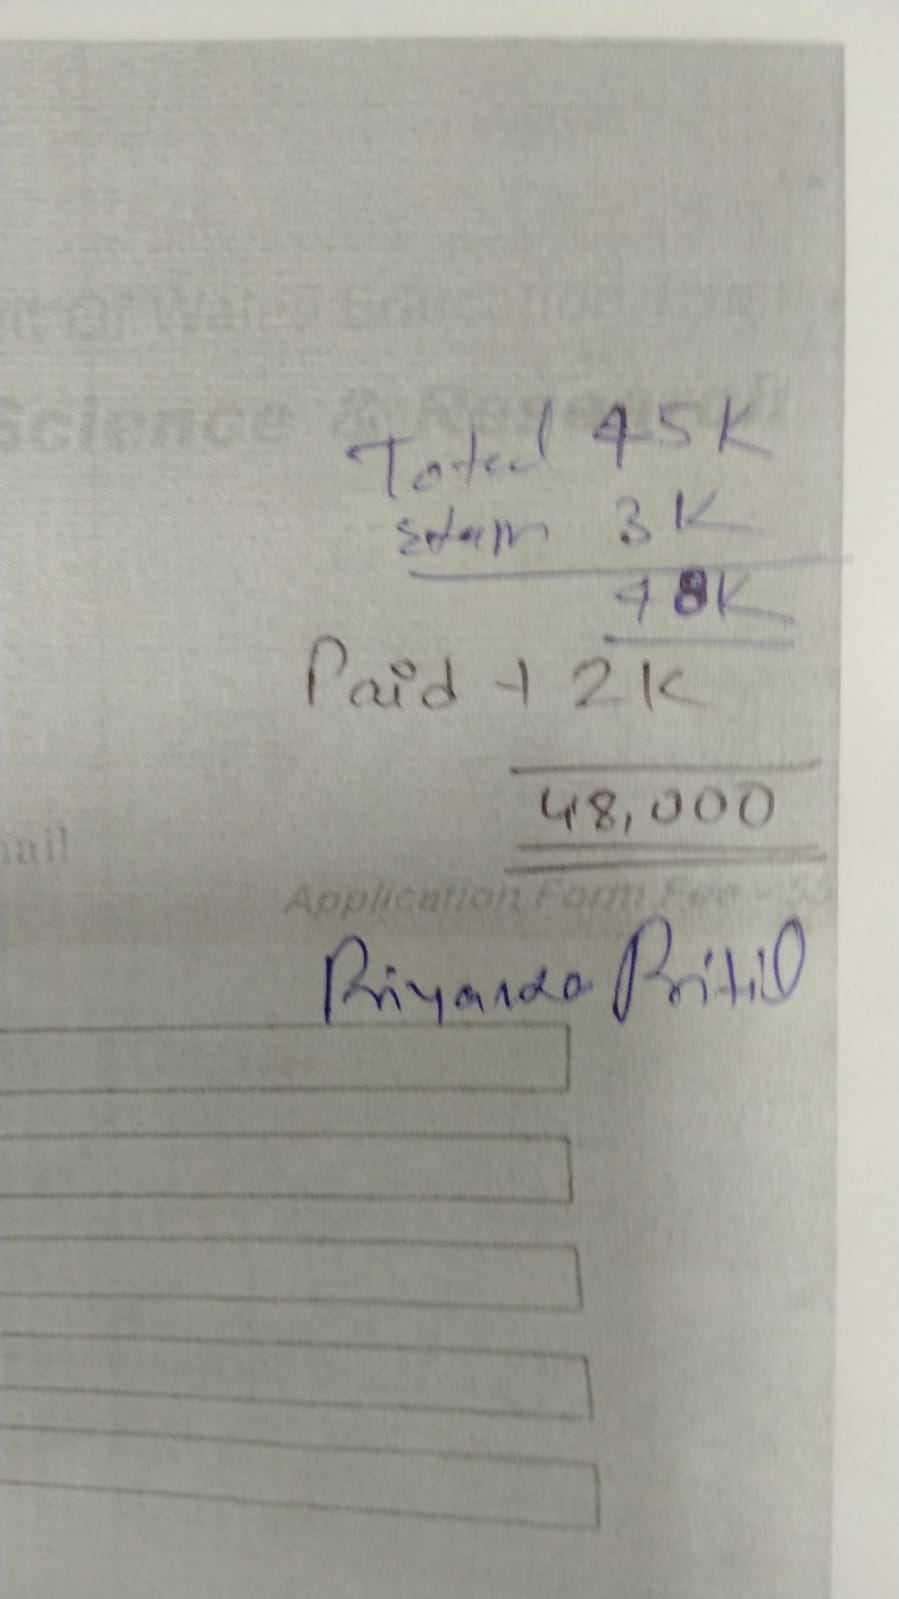 Science & Research
Total 45K
Exam 3K
48K
Paid + 2K
48,000
nail
Application Form Fee - 55
Priyanka Pritil